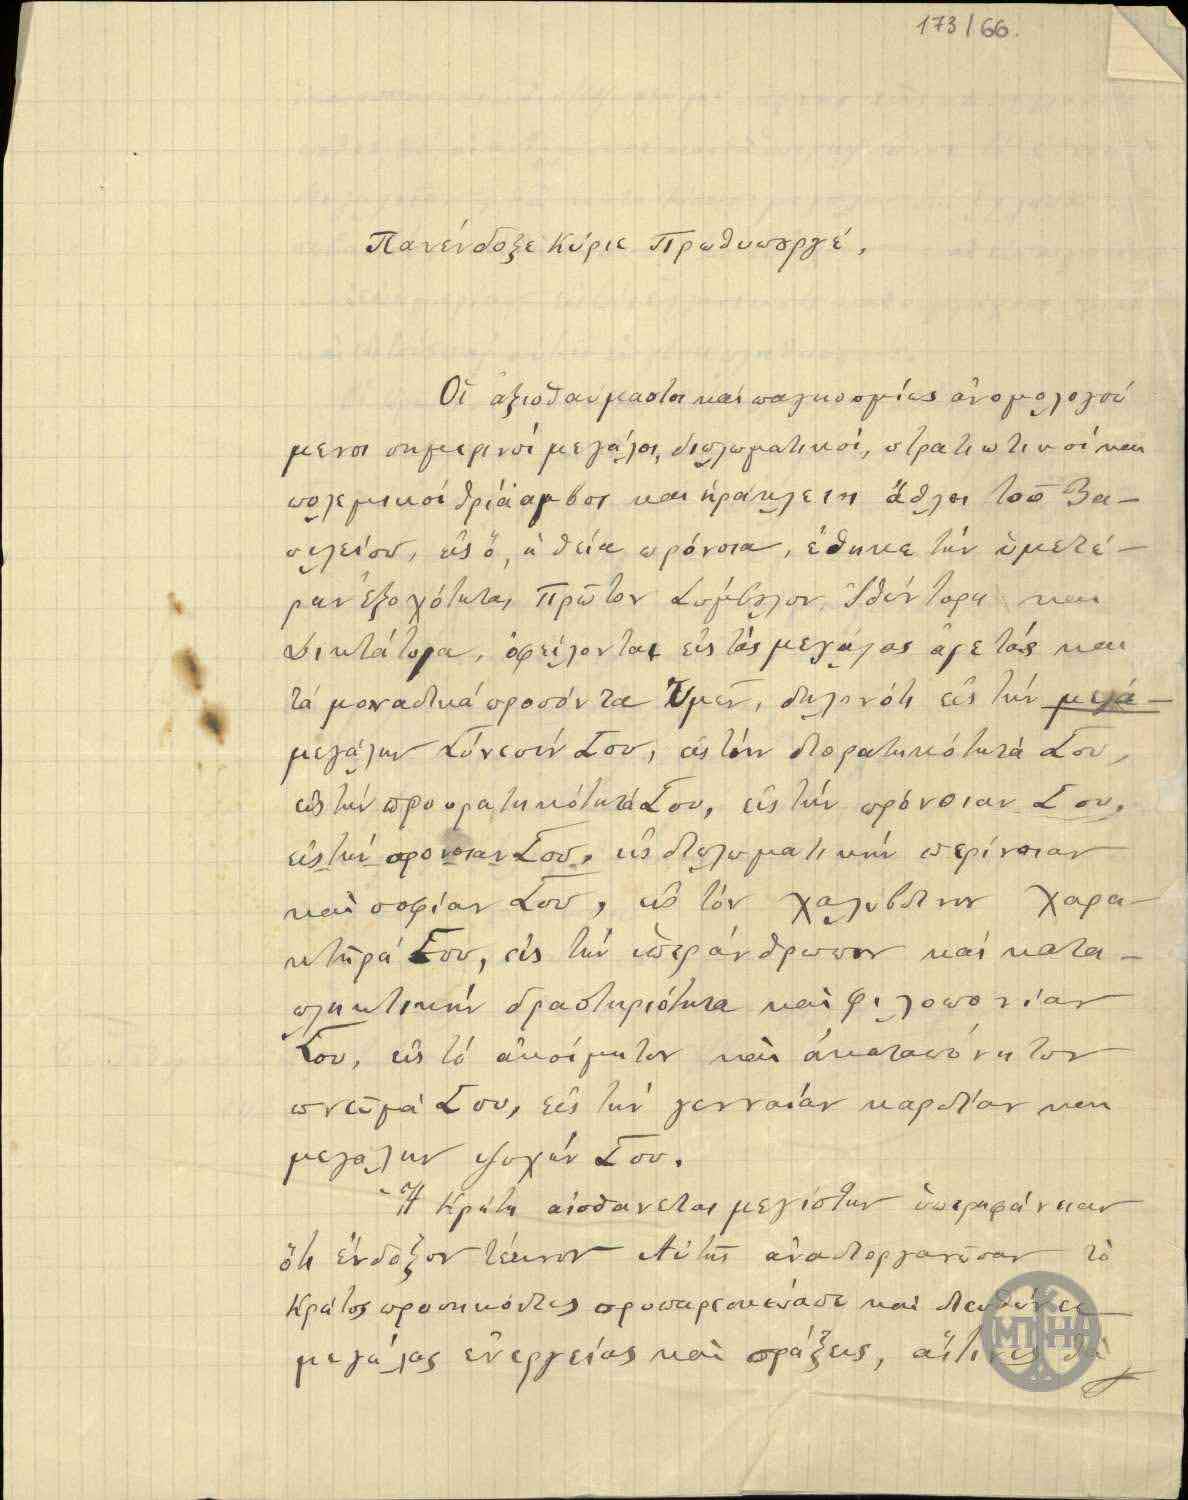 173/66.
Πανένδοξε Κύριε Πρωθυπουργέ,
Οἱ ἀξιοθαύμαστοι καὶ παγκοσμίως ἀνομολογού
μενοι σημερινοί μεγάλοι, διπλωματικοί, στρατιωτικοί και
πολεμικοί θρίαμβοι και ἡράκλειοι ἆθλοι τοῦ Βα-
σιλείου, εἰς ὅ, ἡ θεία πρόνοια, ἔθηκε τήν ὑμετέ-
ραν ἐξοχότητα, πρῶτον Σύμβουλον, Ἰθύντορα και
Δικτάτορα, ὀφείλονται εἰς τάς μεγάλας ἀρετάς και
τά μοναδικά προσόντα Ὑμῶν, δηλονότι εἰς τήν μεγά-
μεγάλην Σύνεσίν Σου, εἰς τήν διορατικότητά Σου,
εἰς τήν προορατικότητά Σου, εἰς τήν πρόνοιαν Σου,
εἰς τήν προνοιαν Σου, εἰς διπλωματικήν περίνοιαν
καὶ σοφίαν Σου, εἰς τόν χαλύβδινον χαρα-
κτῆρά Σου, εἰς τήν ὑπεράνθρωπον καί κατα-
πληκτικήν δραστηριότητα καὶ φιλοπονίαν
Σου, εἰς τό ἀκοίμητον καὶ ἀκαταπόνητον
πνεῦμά Σου, εἰς τήν γενναίαν καρδίαν και
μεγάλην ψυχήν Σου.
Ἡ Κρήτη αἰσθάνεται μεγίστην ὑπερηφάνειαν
ὅτι ἔνδοξον τέκνον Αὐτῆς ἀναδιοργανῶσαν τὸ
Κράτος προσηκόντως προπαρεσκεύασε καὶ διευθύνει
μεγάλας ἐνεργείας καὶ πράξεις, αἵτινες θὰ